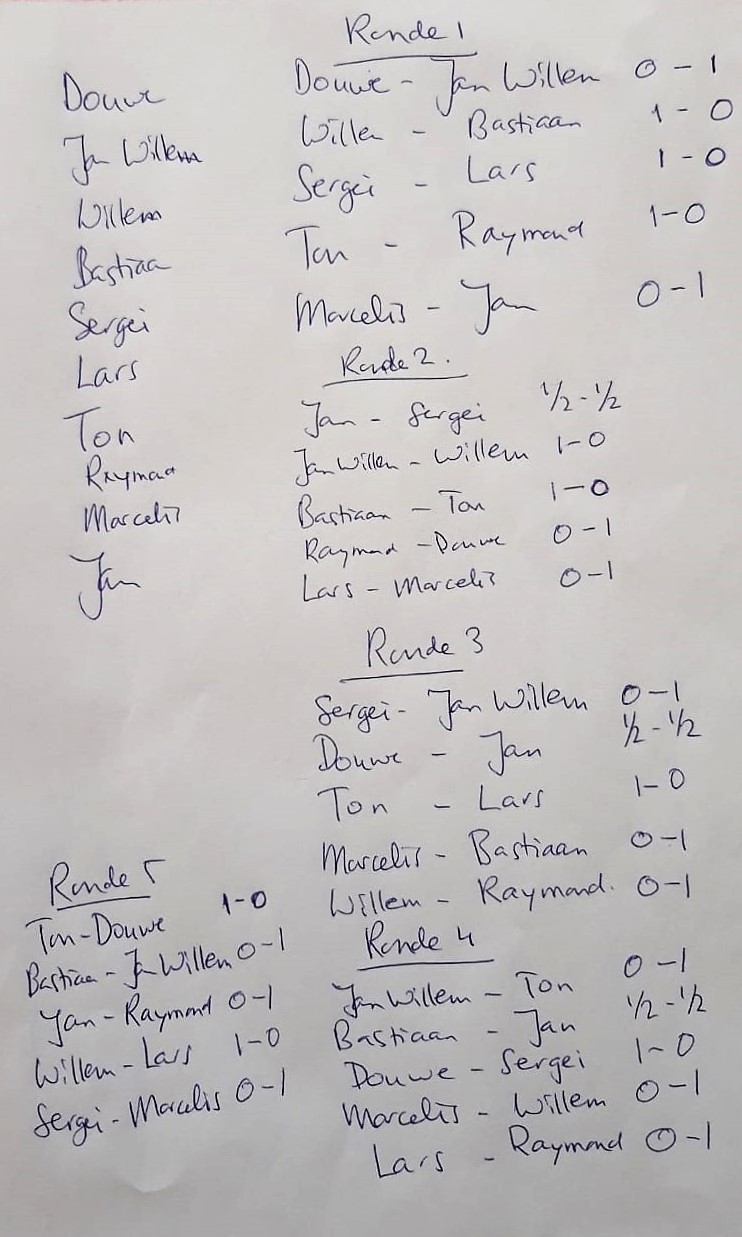 Douwe
Jan Willem
Willem
Bastiaa
Sergei
Lars
Ton
Raymond
Marcelis
Jan
Ronde 1
Douwe - Jan Willem 0 - 1
Willem - Bastiaan 1 - 0
Sergei - Lars 1 - 0
Ton - Raymond 1-0
Marcelis - Jan 0-1
Ronde 2.
Jan - Sergei 1/2 - 1/2
Jan Willem - Willem 1-0
Bastiaan - Ton 1-0
Raymond - Douwe 0-1
Lars - Marcelis 0-1
Ronde 3
Sergei - Jan Willem 0-1
Douwe - Jan 1/2 - 1/2
Ton - Lars 1-0
Marcelis - Bastiaan 0-1
Willem - Raymond. 0-1
Ronde 4
Jan Willem - Ton 0-1
Bastiaan - Jan 1/2 - 1/2
Douwe - Sergei 1-0
Marcelis - Willem 0-1
Lars - Raymond 0-1
Ronde 5
Ton-Douwe 1-0
Bastiaa - Jan Willem 0-1
Jan - Raymond 0-1
Willem - Lars 1-0
Sergei - Marcelis 0-1